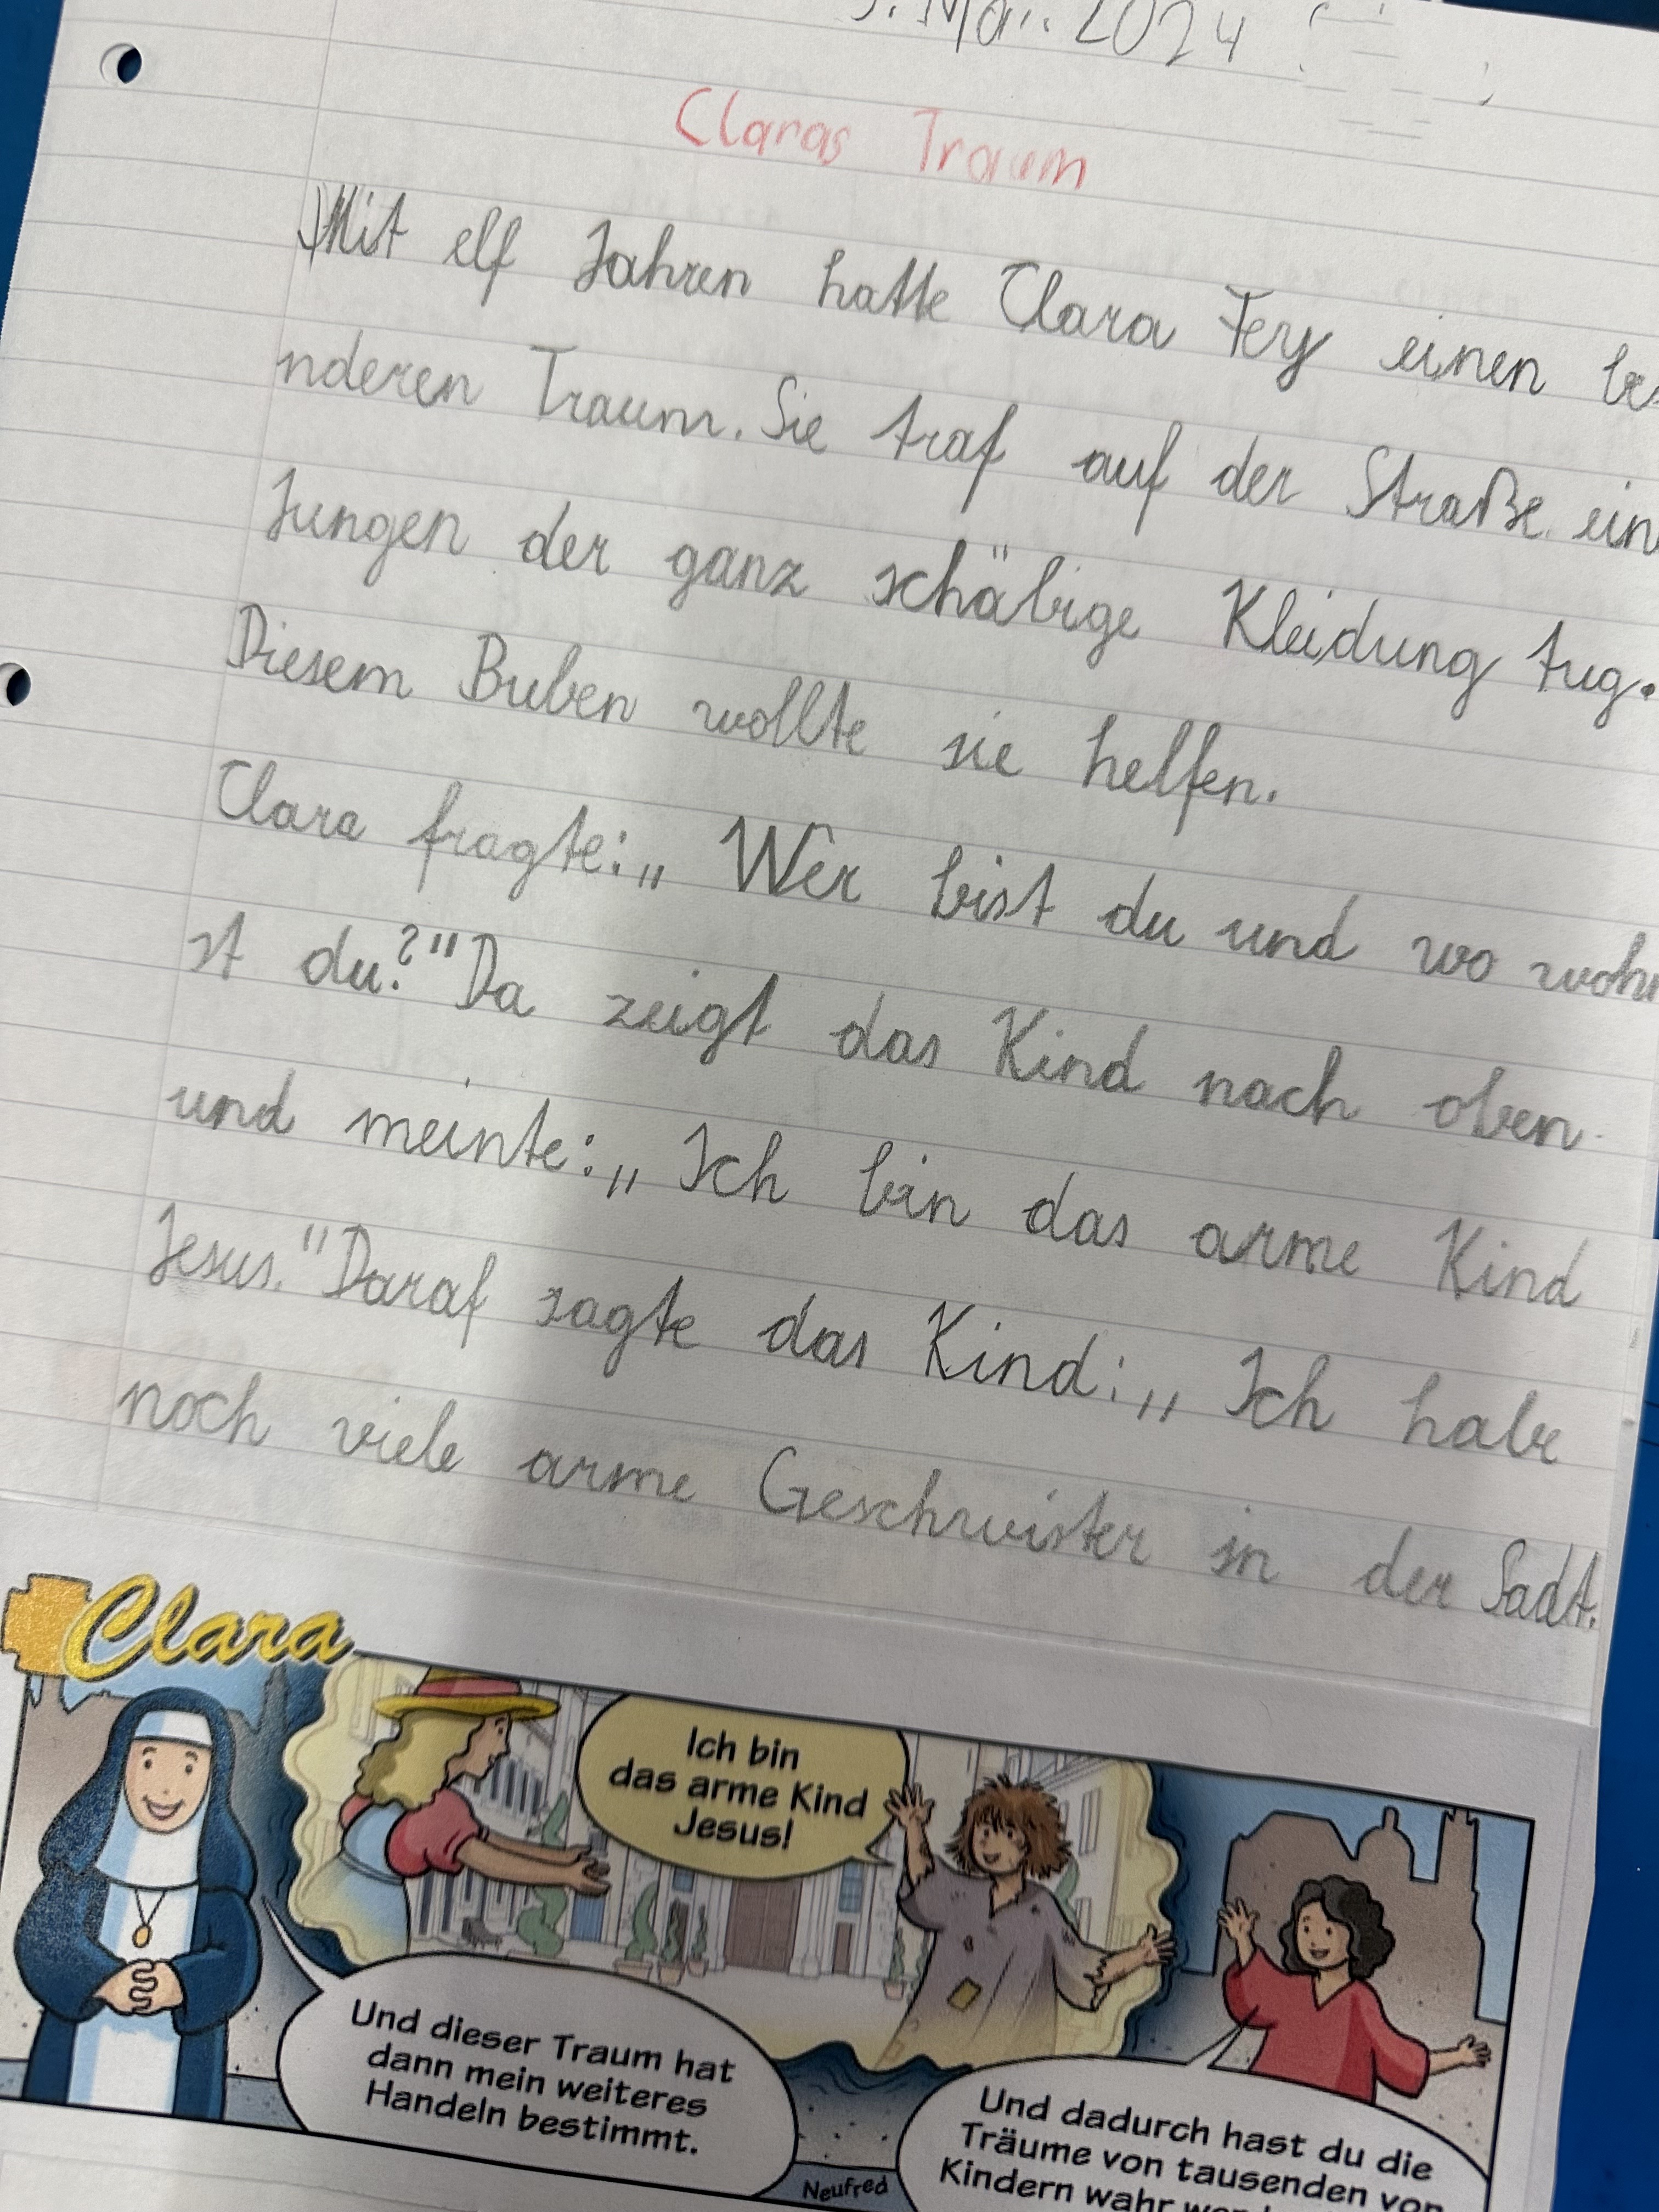 . Mai. 2024
Claras Traum
Mit elf Jahren hatte Clara Fey einen be
nderen Traum. Sie traf auf der Straße ein
Jungen der ganz schäbige Kleidung tug.
Diesem Buben wollte sie helfen.
Clara fragte:„ Wer bist du und wo wohn
st du?" Da zeigt das Kind nach oben
und meinte:„ Ich bin das arme Kind
Jesus." Daraf sagte das Kind:„ Ich habe
noch viele arme Geschwister in der Sadt.
Clara
Ich bin
das arme Kind
Jesus!
Und dieser Traum hat
dann mein weiteres
Handeln bestimmt.
Und dadurch hast du die
Träume von tausenden von
Kindern wahr
Neufred